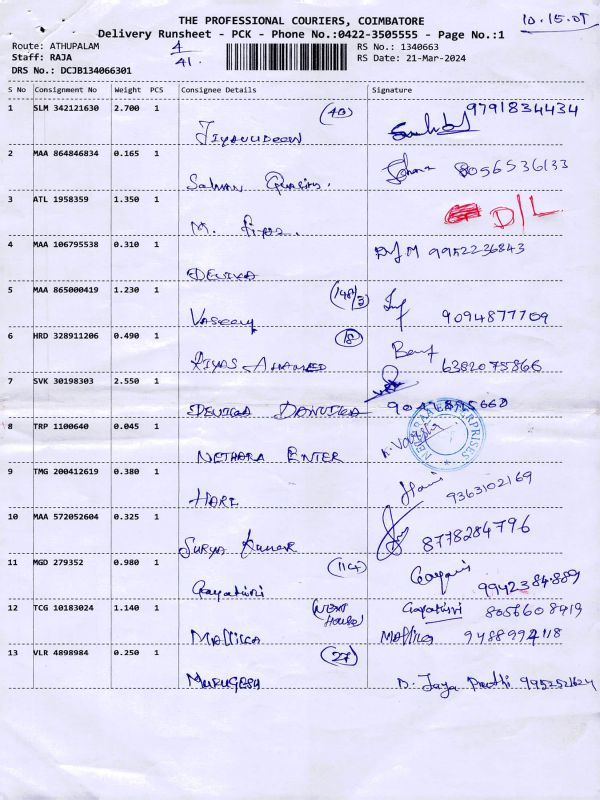 THE PROFESSIONAL COURIERS, COIMBATORE
10.15.07
Delivery Runsheet - PCK - Phone No.:0422-3505555 - Page No.:1
Route: ATHUPALAM 4/41. RS No.: 1340663
Staff: RAJA RS Date: 21-Mar-2024
DRS No.: DCJB134066301
S No Consignment No Weight PCS Consignee Details Signature
1 SLM 342121630 2.700 1 (4B) 9791834434
2 MAA 864846834 0.165 1 8056536133
Salman
3 ATL 1958359 1.350 1 D/L
M.
4 MAA 106795538 0.310 1 9952236843
DEVIKA
5 MAA 865000419 1.230 1 9094877709
6 HRD 328911206 0.490 1 (18) 6382075866
RIYAS AHAMED
7 SVK 30198303 2.550 1
DEVIKA DANVIKA
8 TRP 1100640 0.045 1 ENTERPRISES
NETHARA ENTER
9 TMG 200412619 0.380 1 Hari 9363102169
HARI
10 MAA 572052604 0.325 1 8778284796
SURYA Kumar
11 MGD 279352 0.980 1 (114) Gayatri 9942384889
Gayathiri
12 TCG 10183024 1.140 1 (NEXT House) Gayathiri 8056608419
Mallika Mallika 9488994118
13 VLR 4898984 0.250 1 (27)
MURUGESH D. Jaya 9952521624